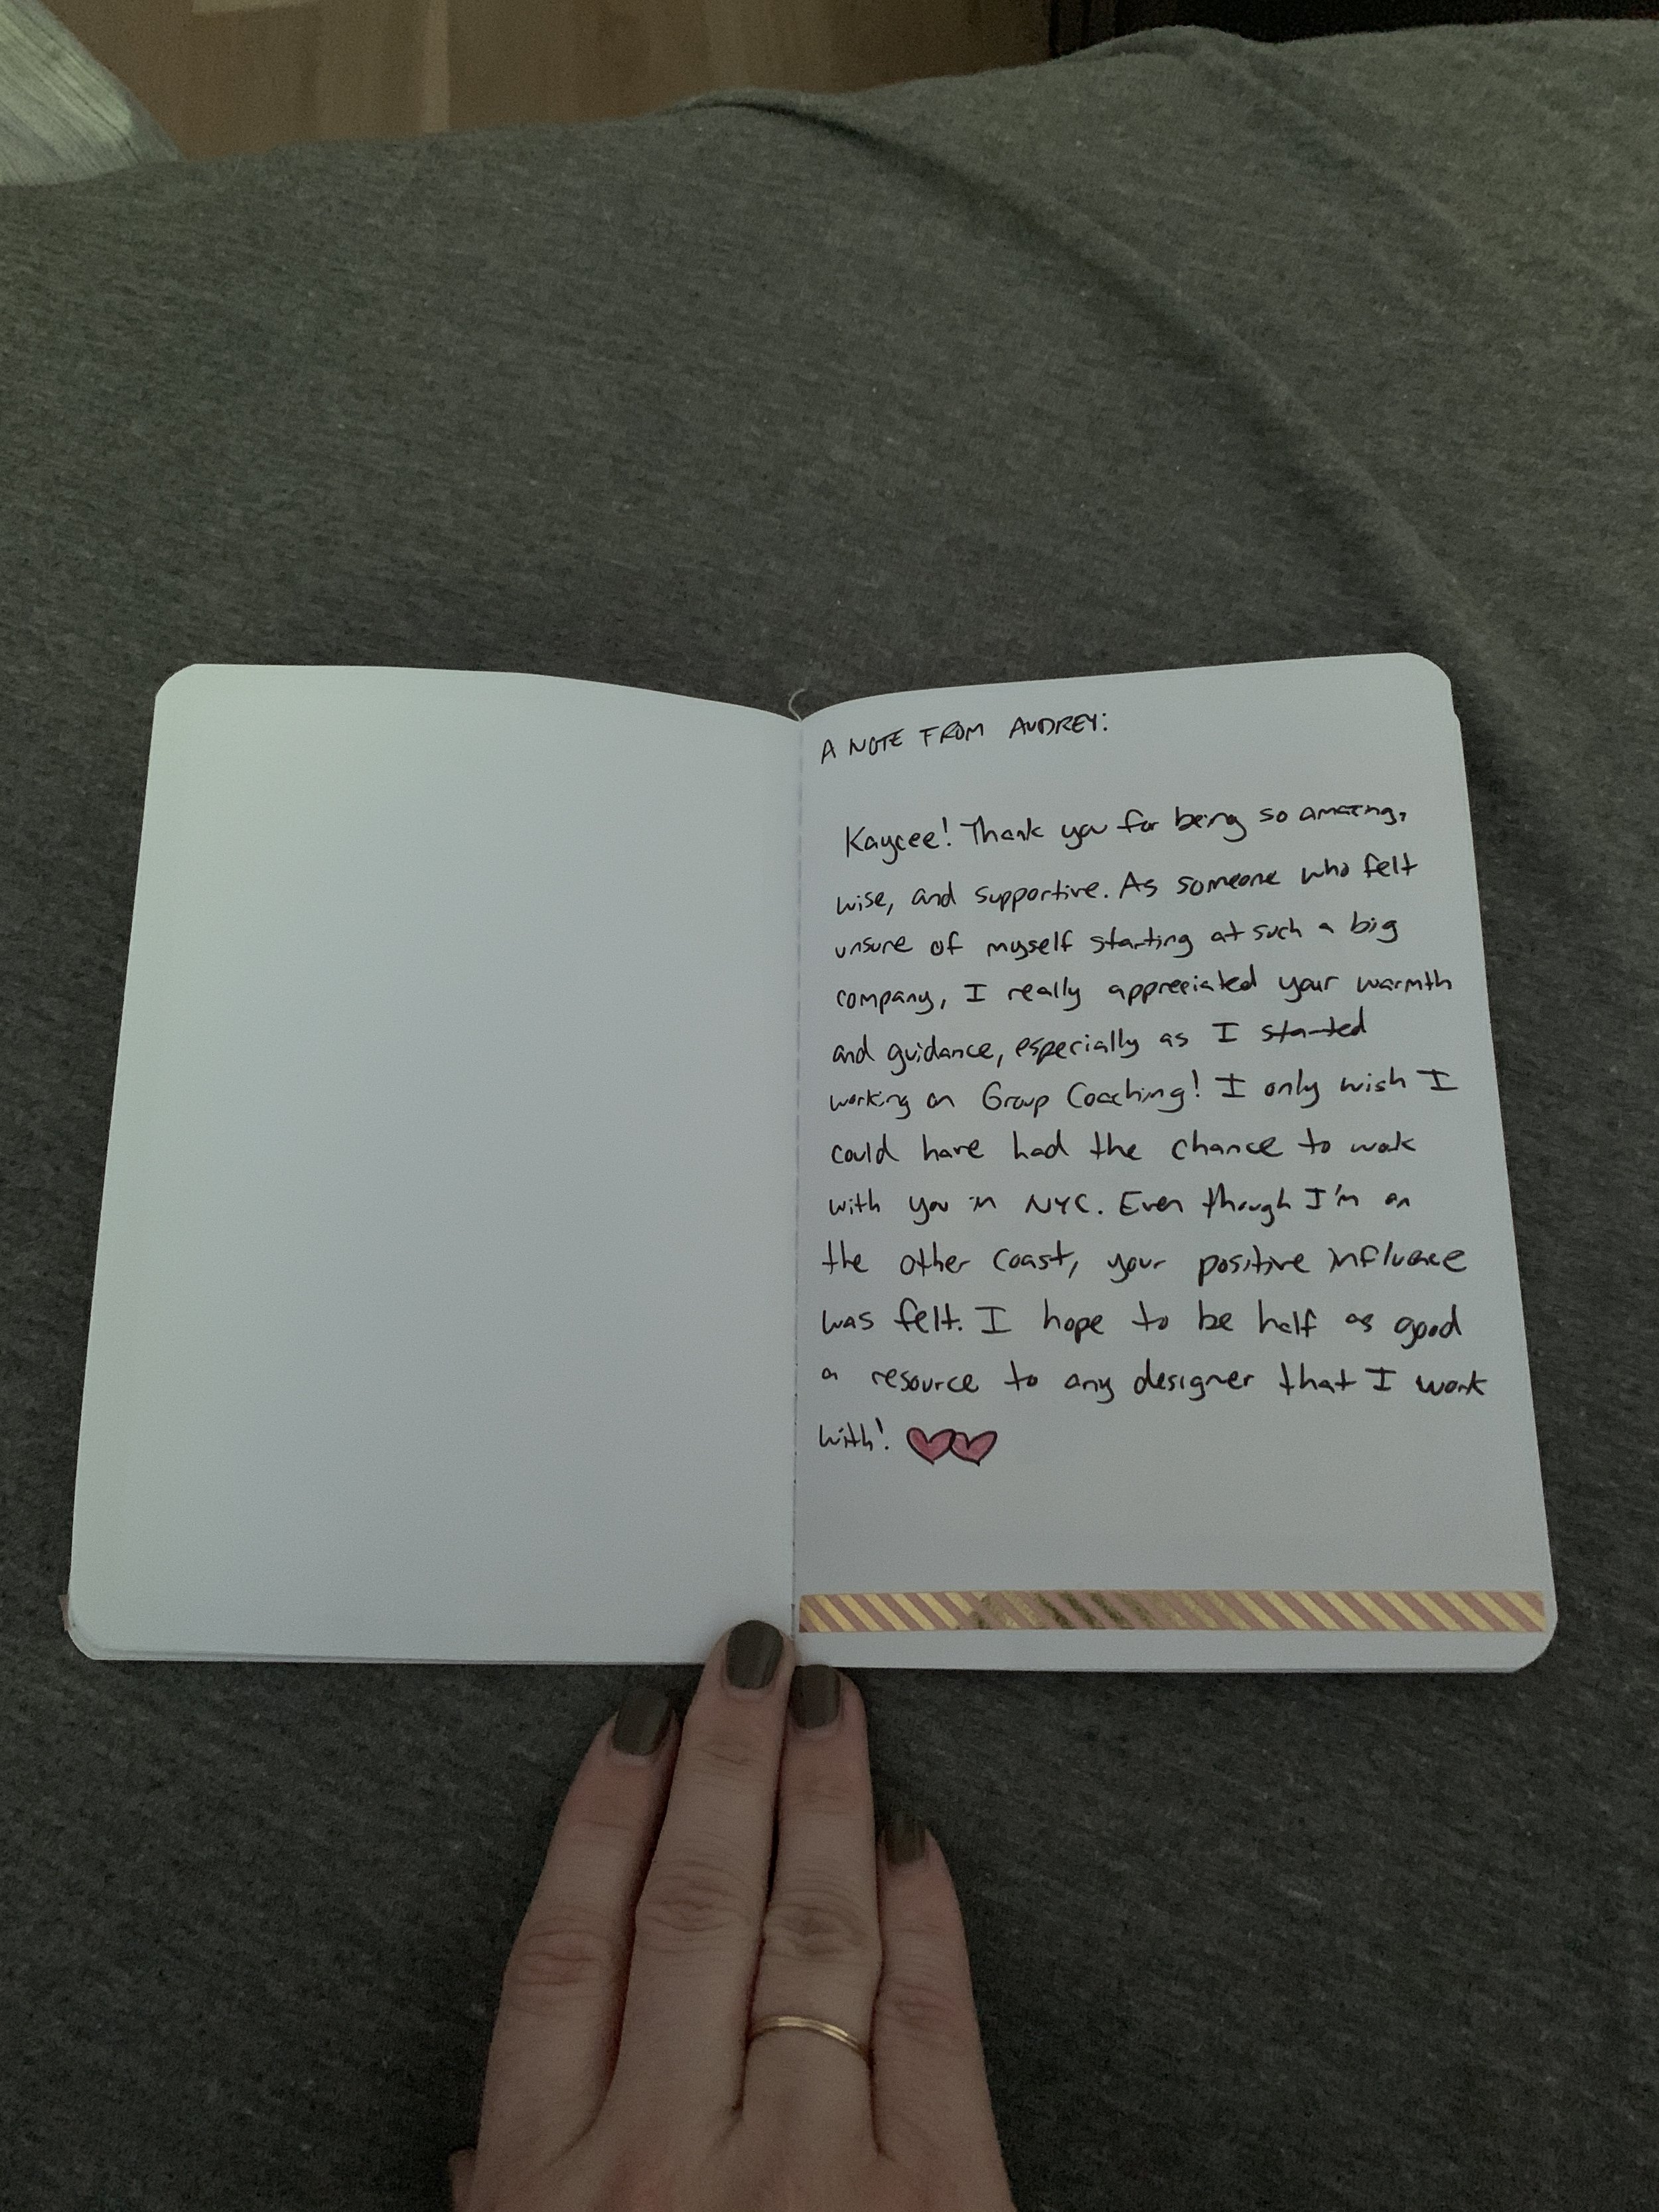 A NOTE FROM AUDREY:
Kaycee! Thank you for being so amazing,
wise, and supportive. As someone who felt
unsure of myself starting at such a big
company, I really appreciated your warmth
and guidance, especially as I started
working on Group Coaching! I only wish I
could have had the chance to work
with you in NYC. Even though I'm on
the other coast, your positive influence
was felt. I hope to be half as good
a resource to any designer that I work
with!